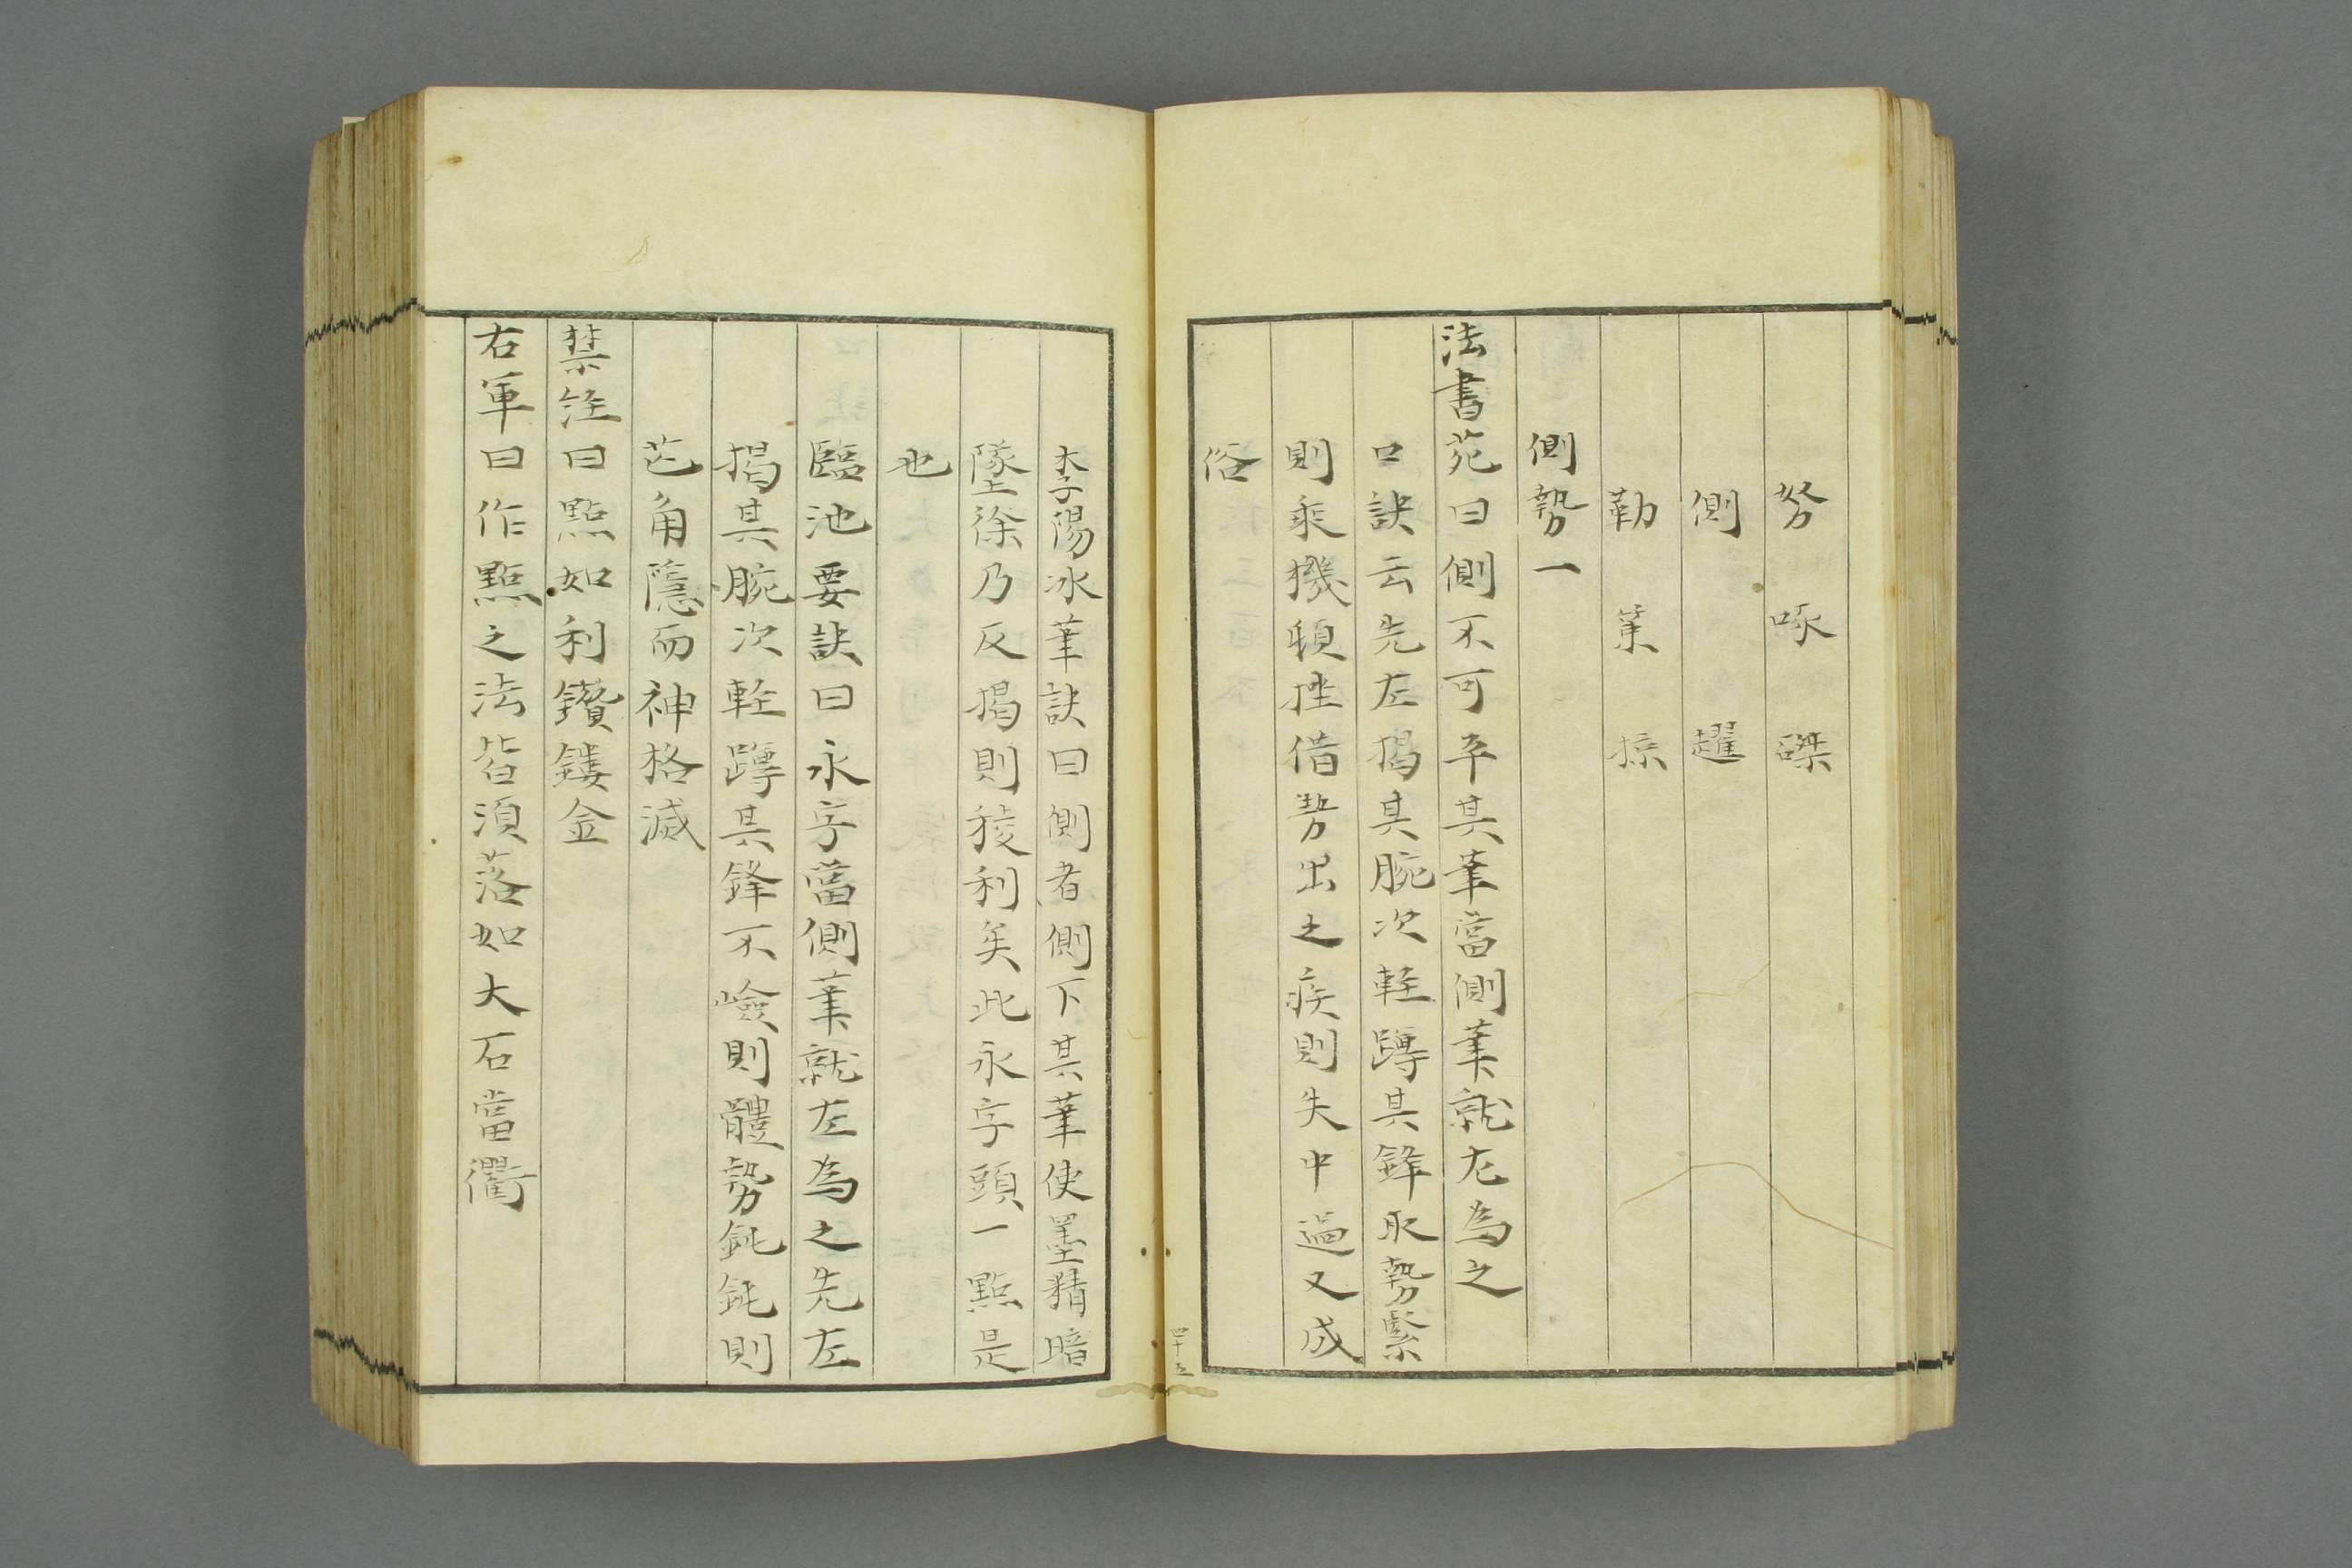 努 啄 磔
側 趯
勒 策 掠
側勢一
法書苑曰側不可平其筆當側筆就左為之
口訣云先左揭其腕次輕蹲其鋒取勢緊
則乘機頓挫借勢出之疾則失中過又成
俗
四十五
李陽冰筆訣曰側者側下其筆使墨精暗
墜徐乃反揭則稜利矣此永字頭一點是
也
臨池要訣曰永字當側筆就左為之先左
揭其腕次輕蹲其鋒不嶮則體勢鈍鈍則
芒角隱而神格滅
禁經曰點如利鑽鏤金
右軍曰作點之法皆須落如大石當衢